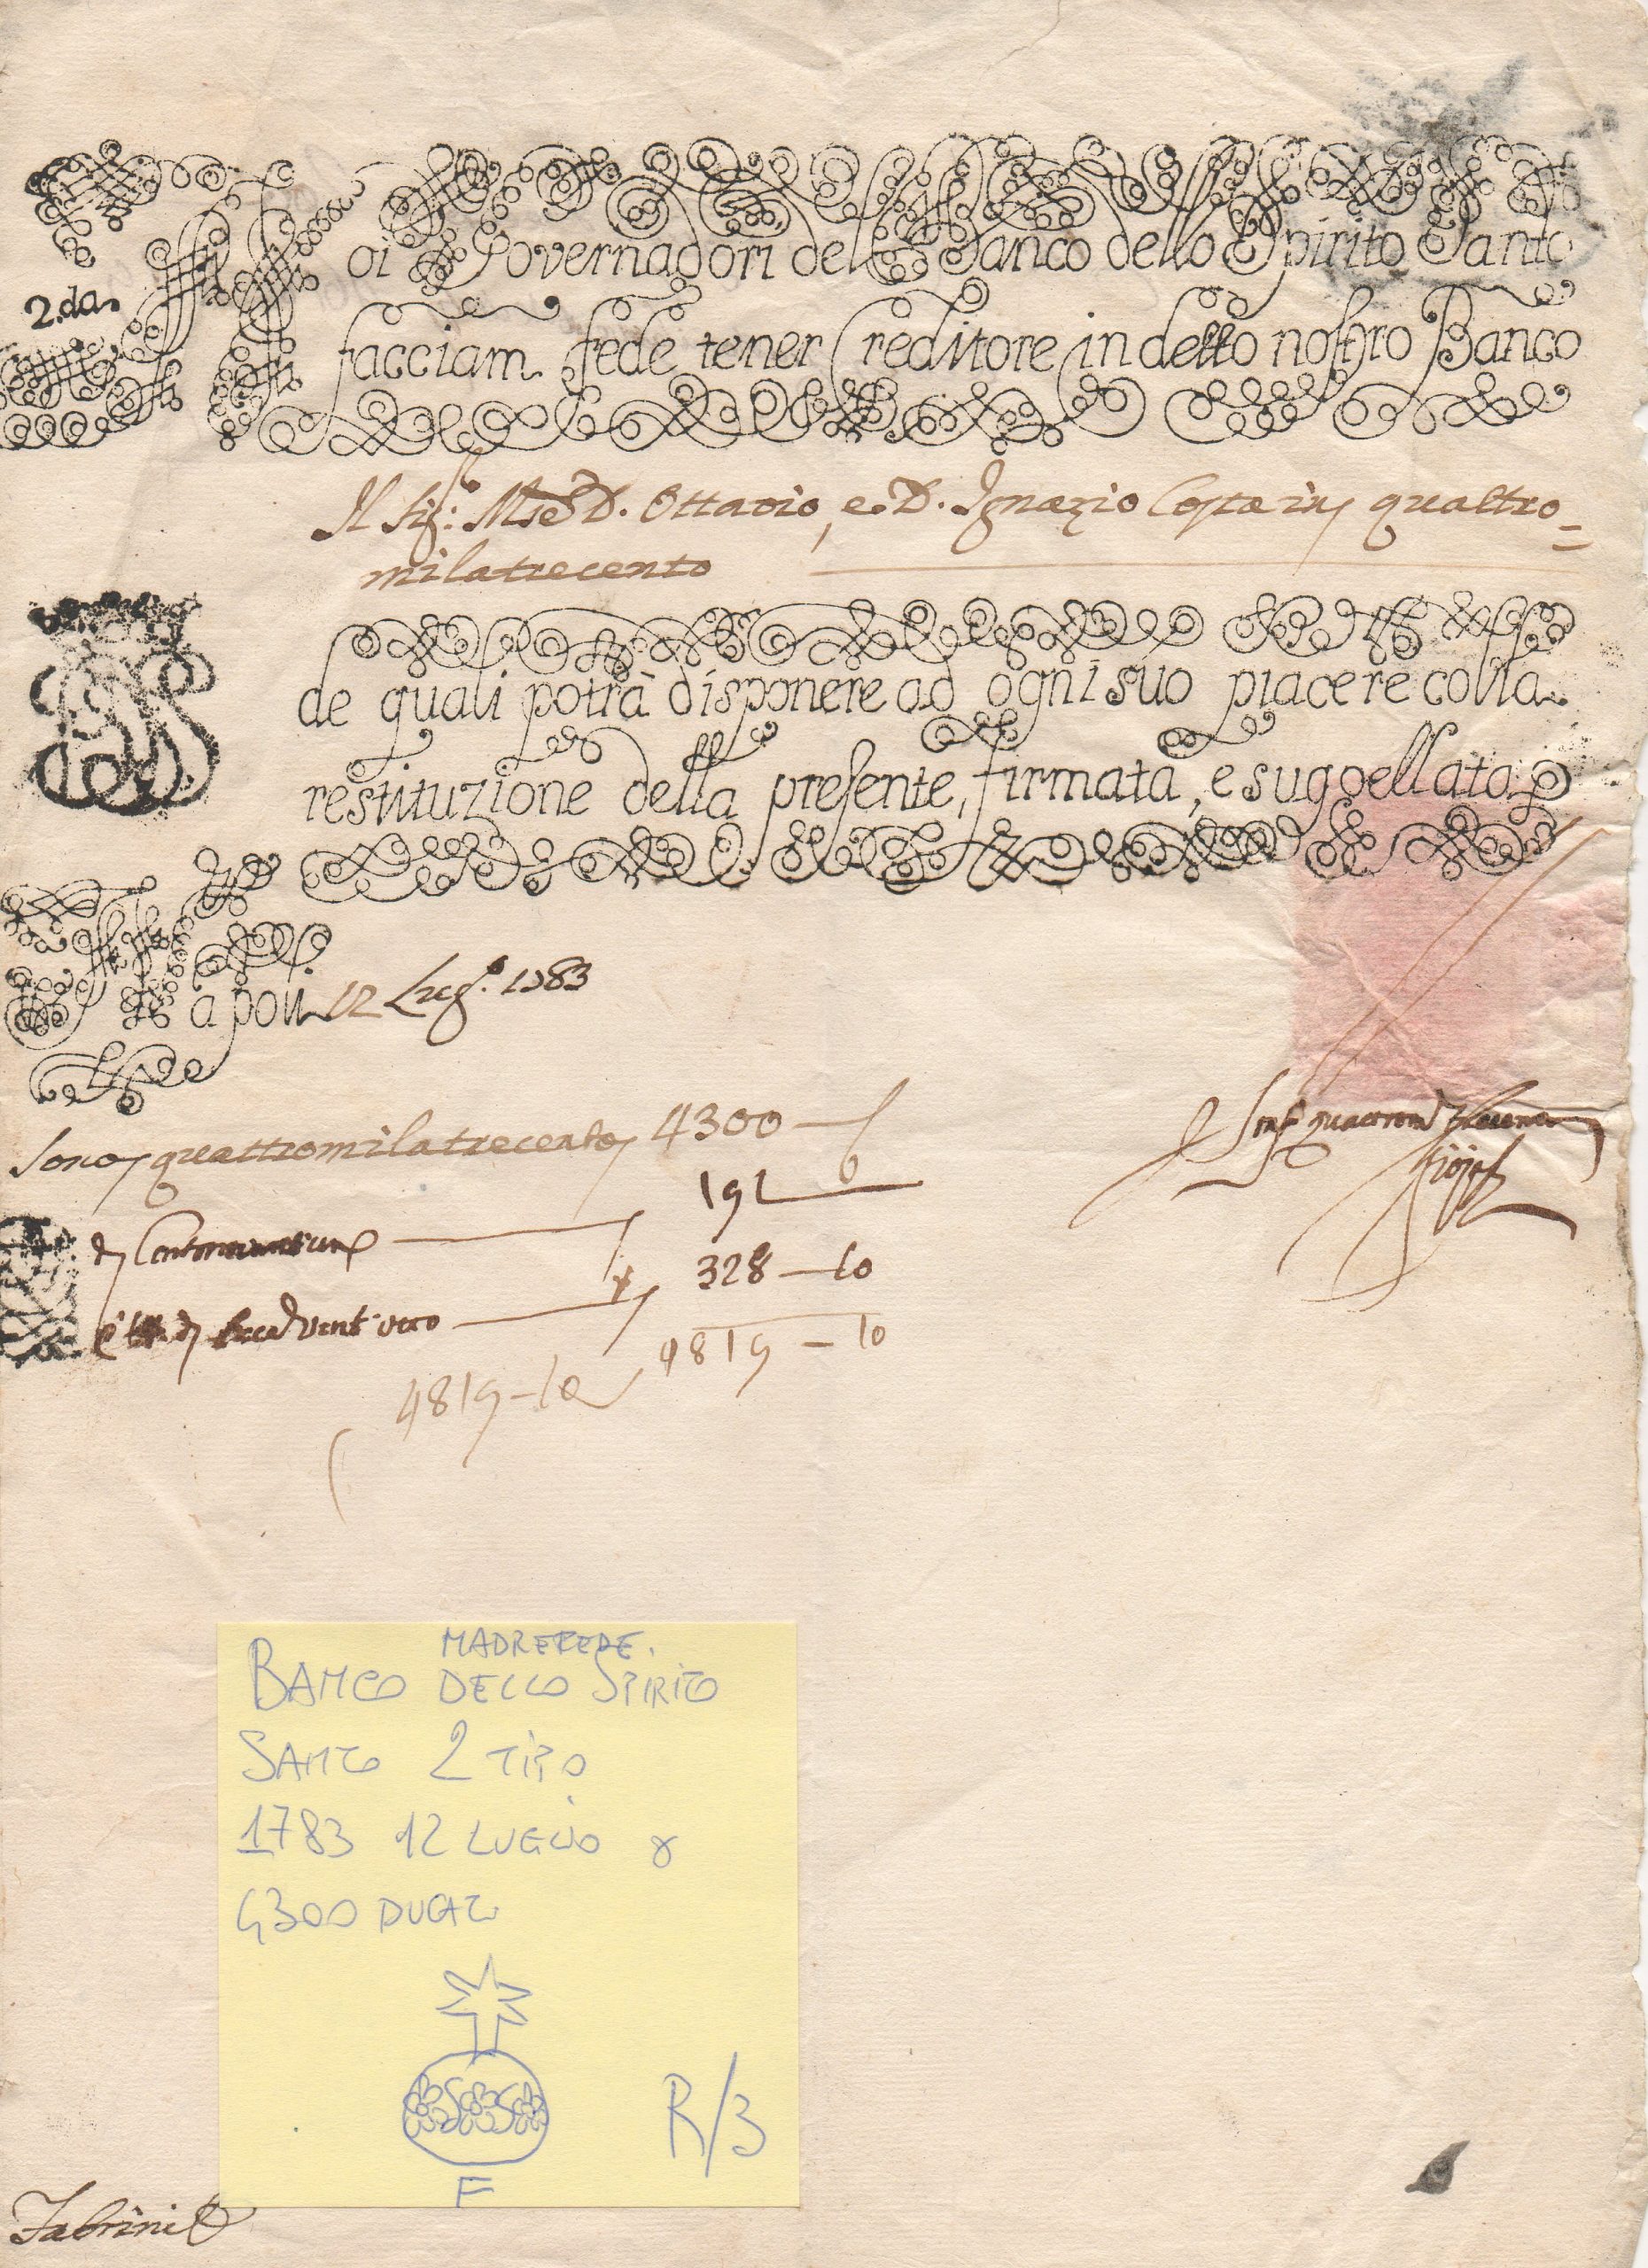 Noi Governadori del Banco dello Spirito Santo
2.da
facciam fede tener Creditore in detto nostro Banco
Il Sig.r D. Ottavio, e D. Ignazio Costa in quattro=
milatrecento
de quali potrà disponere ad ogni suo piacere colla
restituzione della presente, firmata, e suggellata
Napoli 12 Lug.o 1783
Sono quattromilatrecento 4300
191
328 — 10
4819 — 10
4819 — 10
MADREFEDE.
BANCO DELLO SPIRITO
SANTO 2 TIPO
1783 12 LUGLIO
4300 DUCATI
R/3
F
Fabrini